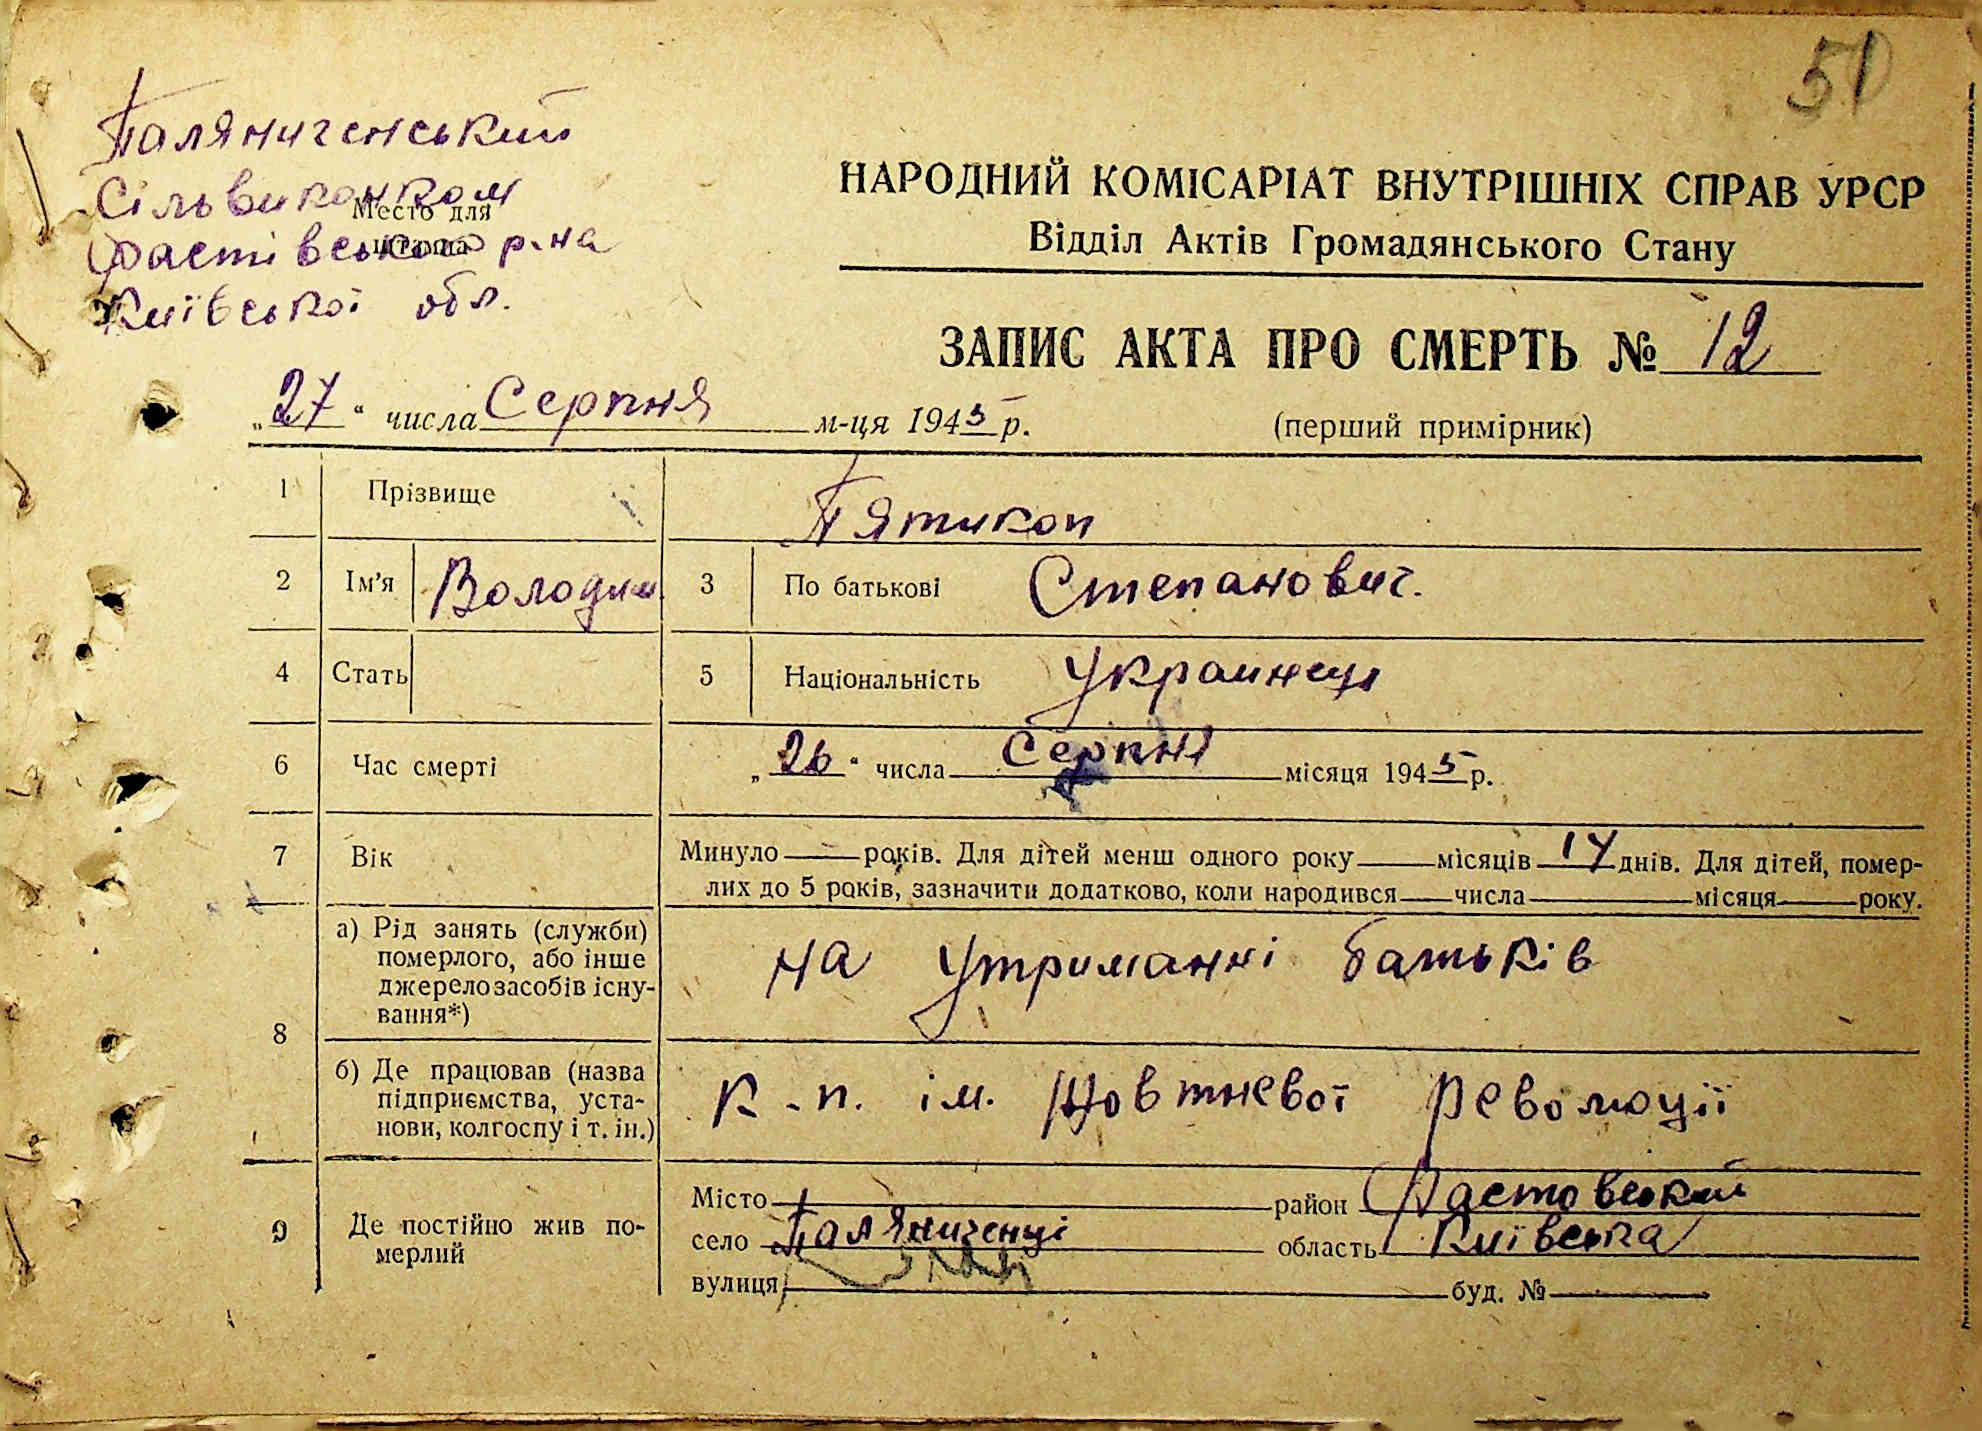 51
Паляниченський
Сільвиконком
Место для
штампа
Фастівського р-на
Київської обл.
НАРОДНИЙ КОМІСАРІАТ ВНУТРІШНІХ СПРАВ УРСР
Відділ Актів Громадянського Стану
ЗАПИС АКТА ПРО СМЕРТЬ № 12
„27“ числа Серпня м-ця 1945 р.
(перший примірник)
1 Прізвище Пятикоп
2 Ім’я Володим. 3 По батькові Степанович.
4 Стать 5 Національність Украинец
6 Час смерті „26“ числа Серпня місяця 1945 р.
7 Вік Минуло — років. Для дітей менш одного року — місяців 14 днів. Для дітей, помер-
лих до 5 років, зазначити додатково, коли народився — числа — місяця — року.
8 а) Рід занять (служби)
померлого, або інше
джерело засобів існу-
вання*)
на утриманні батьків
б) Де працював (назва
підприємства, уста-
нови, колгоспу і т. ін.)
к-п. ім. Жовтневої Революції
9 Де постійно жив по-
мерлий
Місто — район Фастовський
село Паляниченці область Київська
вулиця — буд. № —